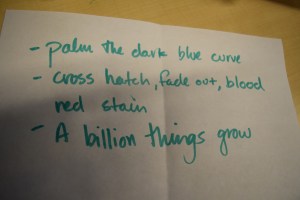 - palm the dark blue curve
- cross hatch, fade out, blood
red stain
- A billion things grow